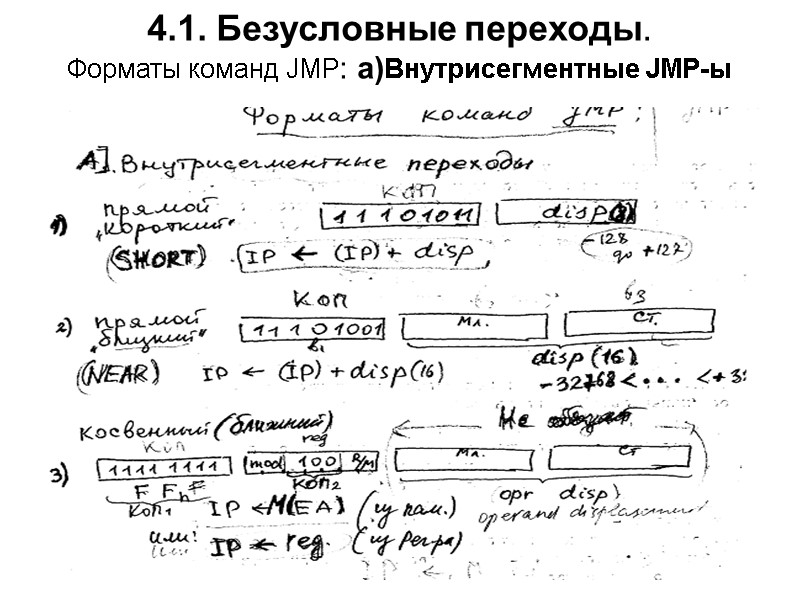 4.1. Безусловные переходы.
Форматы команд JMP: а)Внутрисегментные JMP-ы
Форматы команд JMP:
А]. Внутрисегментные переходы
КОП
1) прямой 11101011 disp(8)
"короткий"
(SHORT) IP ← (IP) + disp, -128 до +127
КОП b3
2) прямой 11101001 Мл. Ст.
"близкий" b1
(NEAR) IP ← (IP) + disp(16) disp(16)
-32768 < ... < +3
косвенный (ближний) Не
КОП reg
3) 1111 1111 mod 100 R/M Мл. Ст
F F h КОП2 (opr disp)
КОП1 IP ← M(EA) (из пам.) operand displacement
или: IP ← reg. (из Рег-ра)